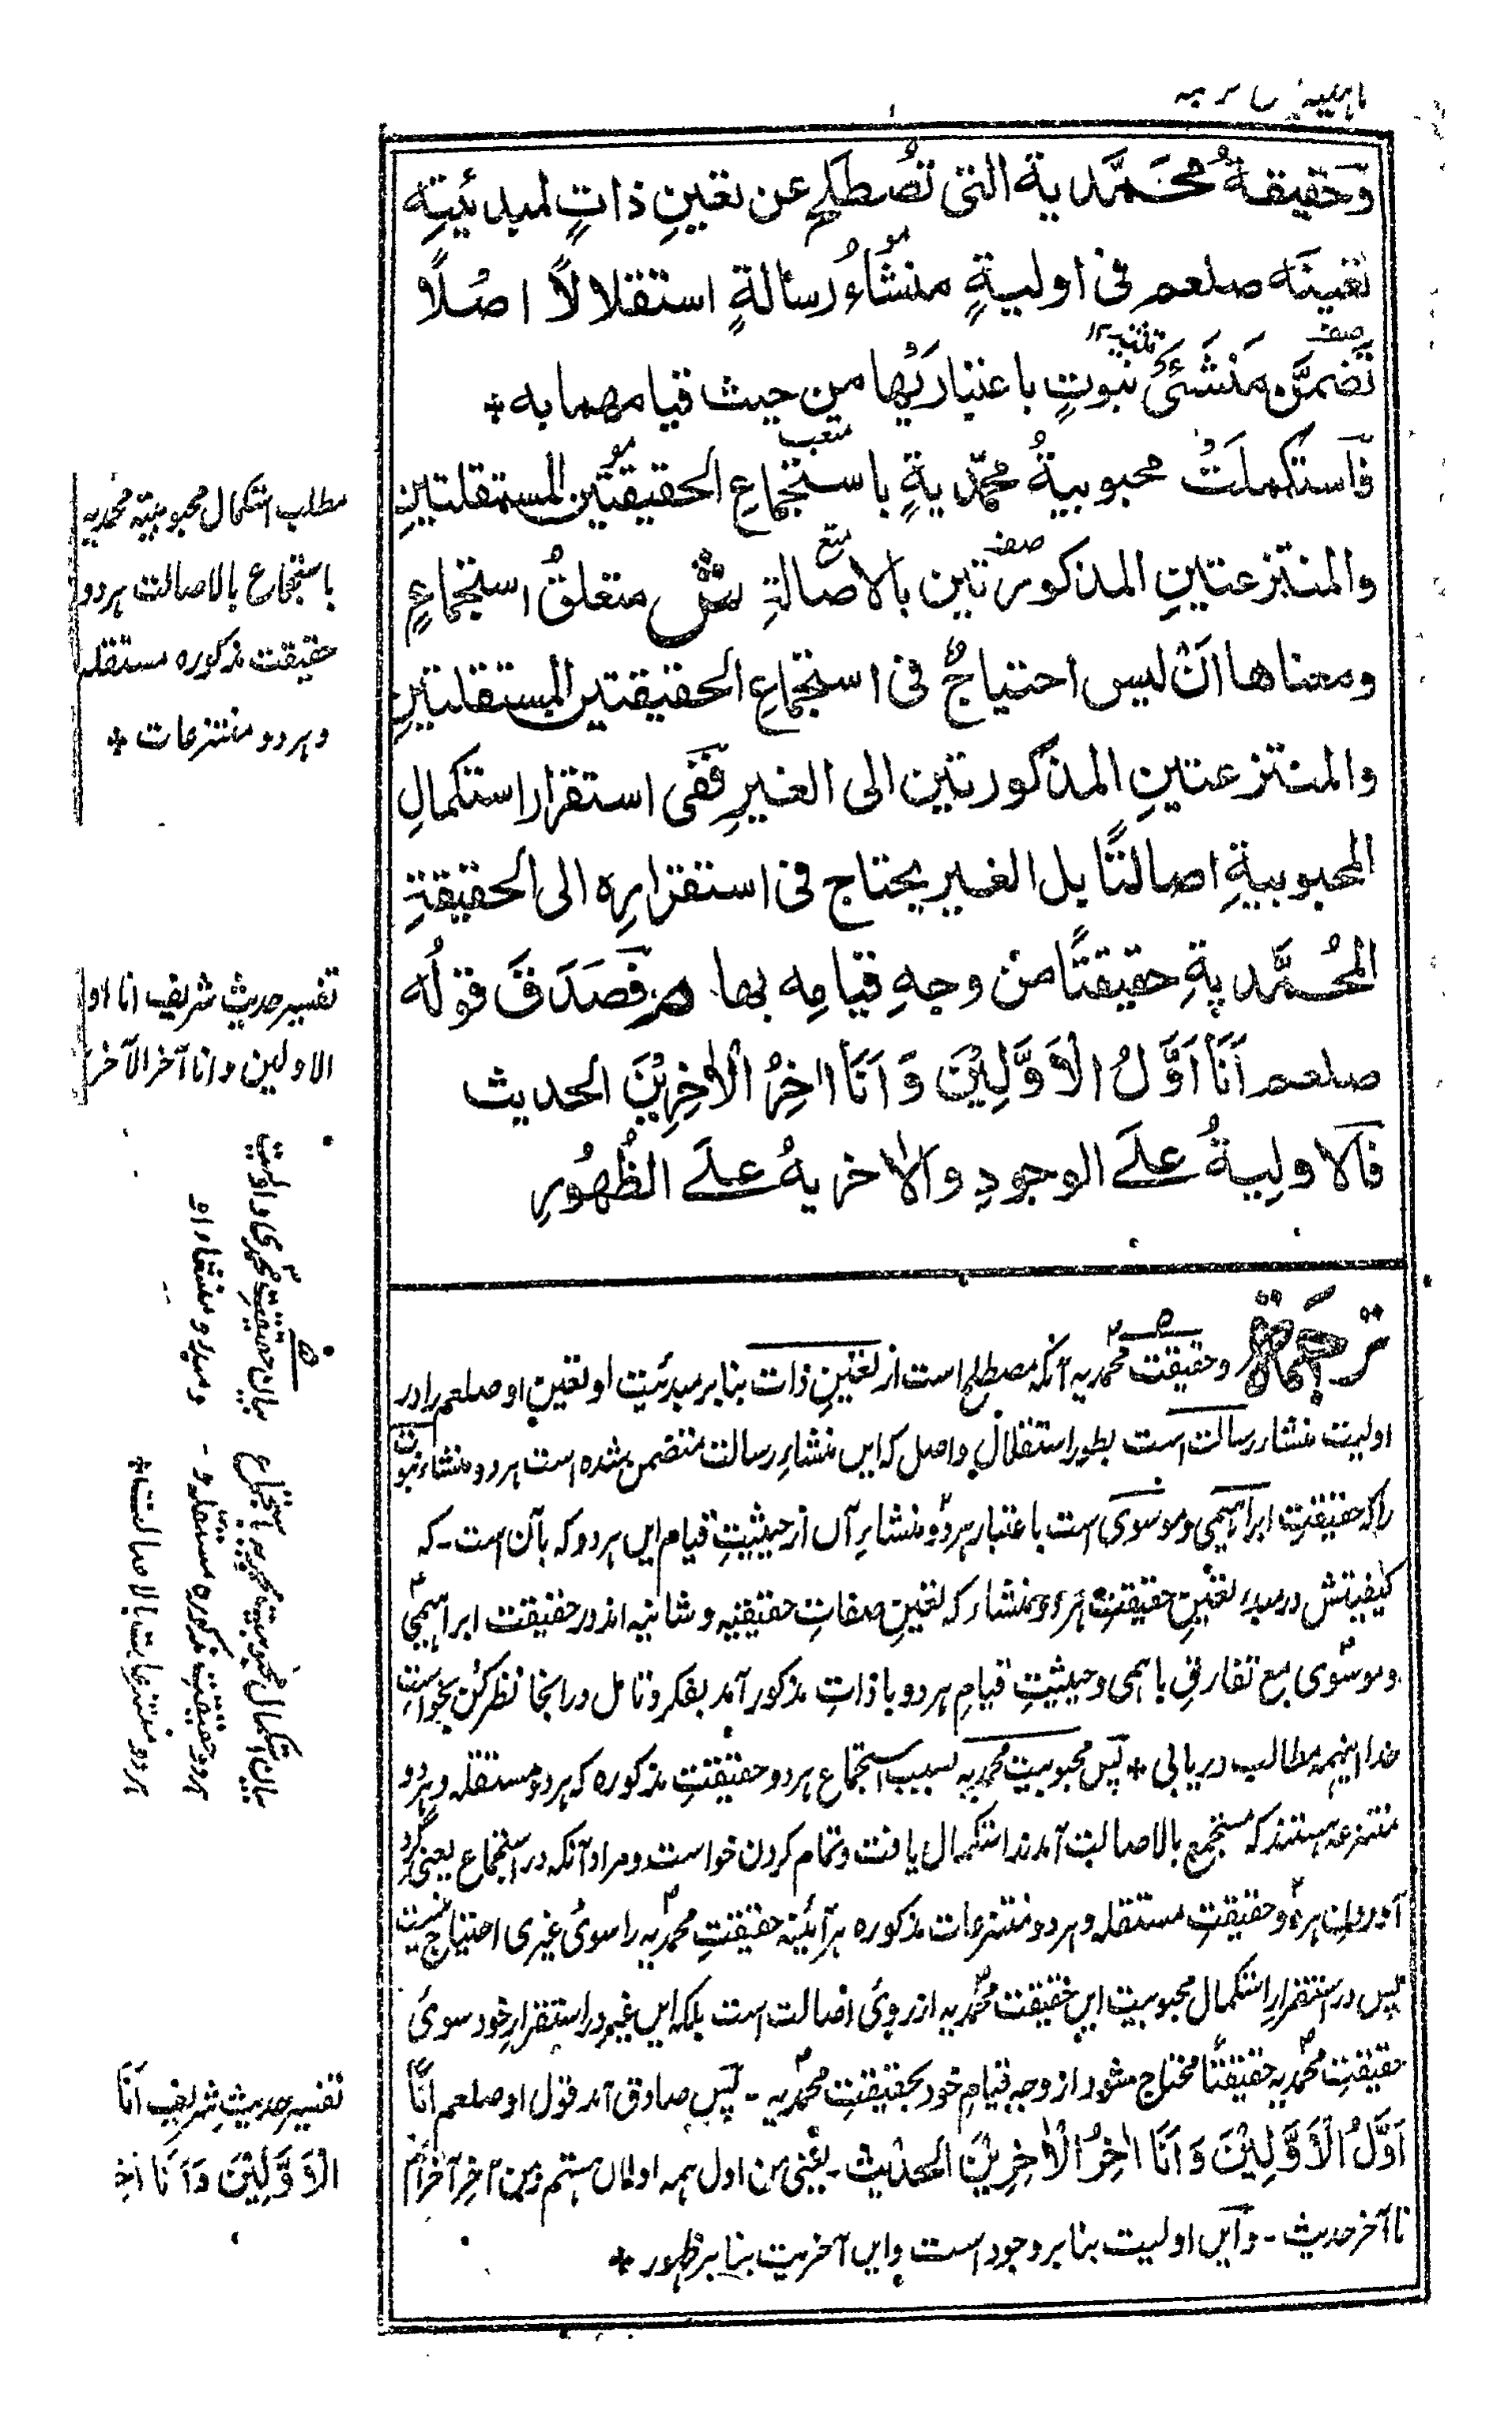 وَحَقِيقةُ مُحَمَّدية التى تُصْطَلح عن تعينِ ذاتٍ لمبدئيتِه
تعينَه صلعم فى اوليةٍ منشاءُ رسالةٍ استقلالاً اصلاً
تَضمَّن مَنشَئَىْ نبوتٍ باعتبارَيْها من حيث قيامهما به
فاَستكملَتْ محبوبيةُ محمّديةٍ باستجماعِ الحقيقتين المستقلتينِ
والمنتزعتينِ المذكورتين بالاصالةِ ش متعلقُ استجماعٍ
ومعناها انْ ليس احتياجٌ فى استجماعِ الحقيقتين المستقلتينِ
والمنتزعتينِ المذكورتين الى الغيرِ ففى استقرار استكمالِ
المحبوبيةِ اصالتًا بل الغير يحتاج فى استقرارِه الى الحقيقةِ
المُحمَّديةِ حقيقتًا من وجهِ قيامِه بها م فَصَدَقَ قولُه
صلعم اَنَا اَوَّلُ الْاَوَّلِيْنَ وَاَنَا اٰخِرُ الْاٰخِرِيْنَ الحديث
فالاوليةُ علَى الوجودِ والاٰخريةُ علَى الظُهُورِ
مطلب استکمال محبوبیتہ محمدیہ
باستجماع بالاصالت ہردو
حقیقت مذکورہ مستقلہ
و ہردو منتزعات
تفسیر حدیث شریف انا او
الاولین و انا آخر الآخر
بیان حقیقت محمدی و اولیت
و مبدء و منشاء او
بیان استکمال محبوبیت محمدیہ باستجماع
ہردو حقیقت مذکورہ مستقلہ و
ہردو منتزعات بالاصالت
ترجمة و حقیقت محمدیہ آنکہ مصطلح است از تعینِ ذات بنا بر مبدئیت او تعین او صلعم را در
اولیت منشاء رسالت است بطور استقلال و اصل کہ ایں منشاءِ رسالت متضمن شدہ است ہردو منشاء نبوت
را کہ حقیقتِ ابراہیمی و موسوی است باعتبار ہردو منشاءِ آں از حیثیتِ قیام ایں ہردو کہ بآن است - کہ
کیفیتش در مبدء تعینِ حقیقت ہردو منشاء کہ تعینِ صفاتِ حقیقیہ و شانیہ اند در حقیقت ابراہیمی
و موسوی مع تفارقِ باہمی و حیثیتِ قیامِ ہردو با ذاتِ مذکور آمد بفکر و تامل در اینجا نظر کن بخواست
خدا اینہمہ مطالب دریابی پس محبوبیت محمدیہ بسبب استجماع ہردو حقیقتِ مذکورہ کہ ہردو مستقلہ و ہردو
منتزعہ ہستند کہ مستجمع بالاصالت آمدند استکمال یافت و تمام کردن خواست و مراد آنکہ در استجماع یعنی گرد
آوردن ہردو حقیقتِ مستقلہ و ہردو منتزعات مذکورہ ہر آئینہ حقیقتِ محمدیہ را سوئ غیری احتیاج نیست
پس در استقرارِ استکمال محبوبیت ایں حقیقت محمدیہ از روئ اصالت است بلکہ ایں غیر در استقرارِ خود سوئ
حقیقتِ محمدیہ حقیقتًا محتاج مشود از وجہ قیامِ خود بحقیقتِ محمدیہ - پس صادق آمد قول او صلعم اَنَا
اَوَّلُ الْاَوَّلِيْنَ وَاَنَا اٰخِرُ الْاٰخِرِيْنَ الحدیث - یعنی من اول ہمہ اولاں ہستم و من آخرِ آخراں
تا آخر حدیث - و ایں اولیت بنا بر وجود است و ایں آخریت بنا بر ظہور
تفسیر حدیثِ شریف اَنَا
الْاَوَّلِيْنَ وَاَنَا اٰخِ